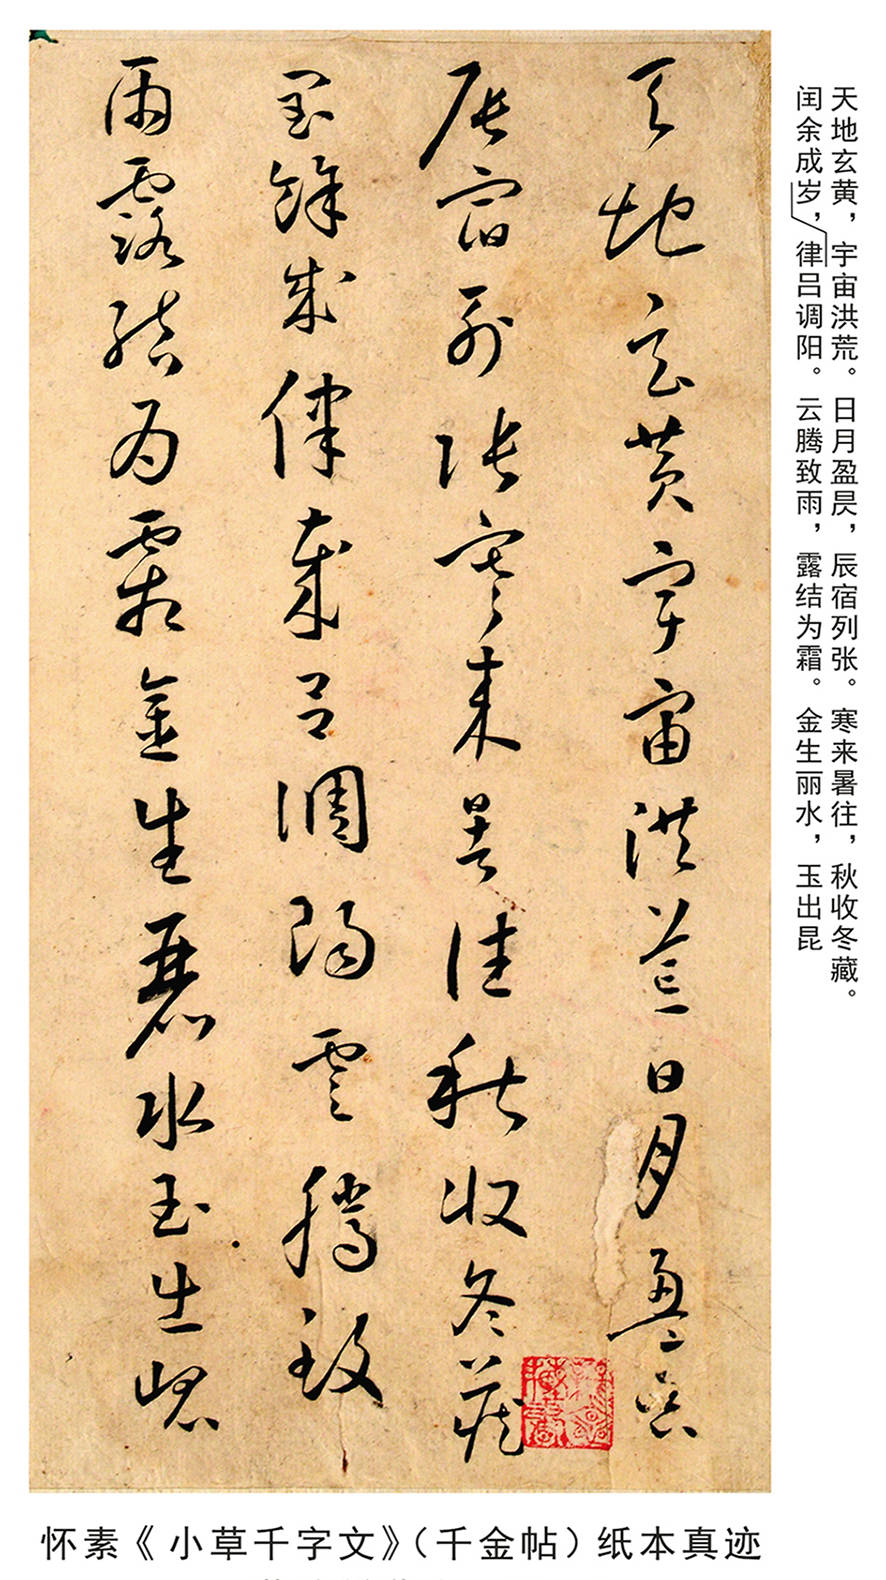 天地玄黄，宇宙洪荒。日月盈昃，辰宿列张。寒来暑往，秋收冬藏。
闰余成岁，律吕调阳。云腾致雨，露结为霜。金生丽水，玉出昆
天地玄黄宇宙洪荒日月盈昃
辰宿列張寒来暑往秋收冬藏
閏餘成律歲吕調陽雲騰致
雨露結为霜金生麗水玉出崐
怀素《小草千字文》（千金帖）纸本真迹